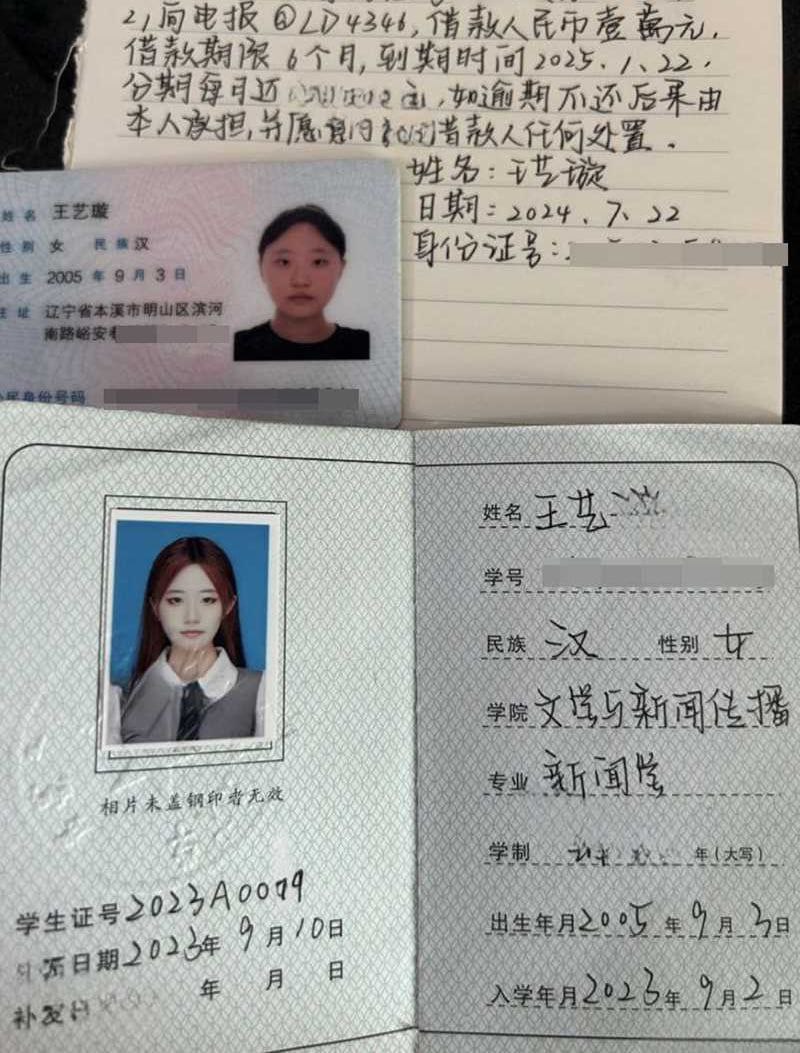 向电报@LD4346,借款人民币壹萬元,
借款期限6个月,到期时间2025.1.22.
分期每月还 ,如逾期不还后果由
本人承担,并愿 借款人任何处置.
姓名:王艺璇
日期:2024.7.22
身份证号:
姓名 王艺璇
性别 女 民族 汉
出生 2005年9月3日
住址 辽宁省本溪市明山区滨河
南路峪安巷
公民身份号码
姓名 王艺
学号
民族 汉 性别 女
学院 文学与新闻传播
专业 新闻学
学制 年(大写)
出生年月 2005年9月3日
入学年月 2023年9月2日
相片未盖钢印者无效
学生证号 2023A0079
日期 2023年9月10日
补发 年 月 日